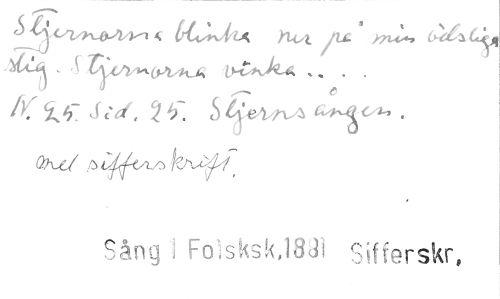 Stjernorna blinka ner på min ödsliga
stig. Stjernorna vinka....
N. 25. Sid. 25. Stjernsången.
med sifferskrift.
Sång i Folsksk,1881 Sifferskr,